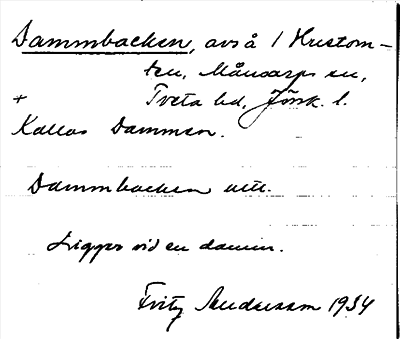 Dammbacken, avs å 1 Hustom-
ten, Månsarps sn,
+ Tveta hd, Jönk. l.
Kallas Dammen.
Dammbacken uttl.
Ligger vid en damm.
Fritz Andersson 1934